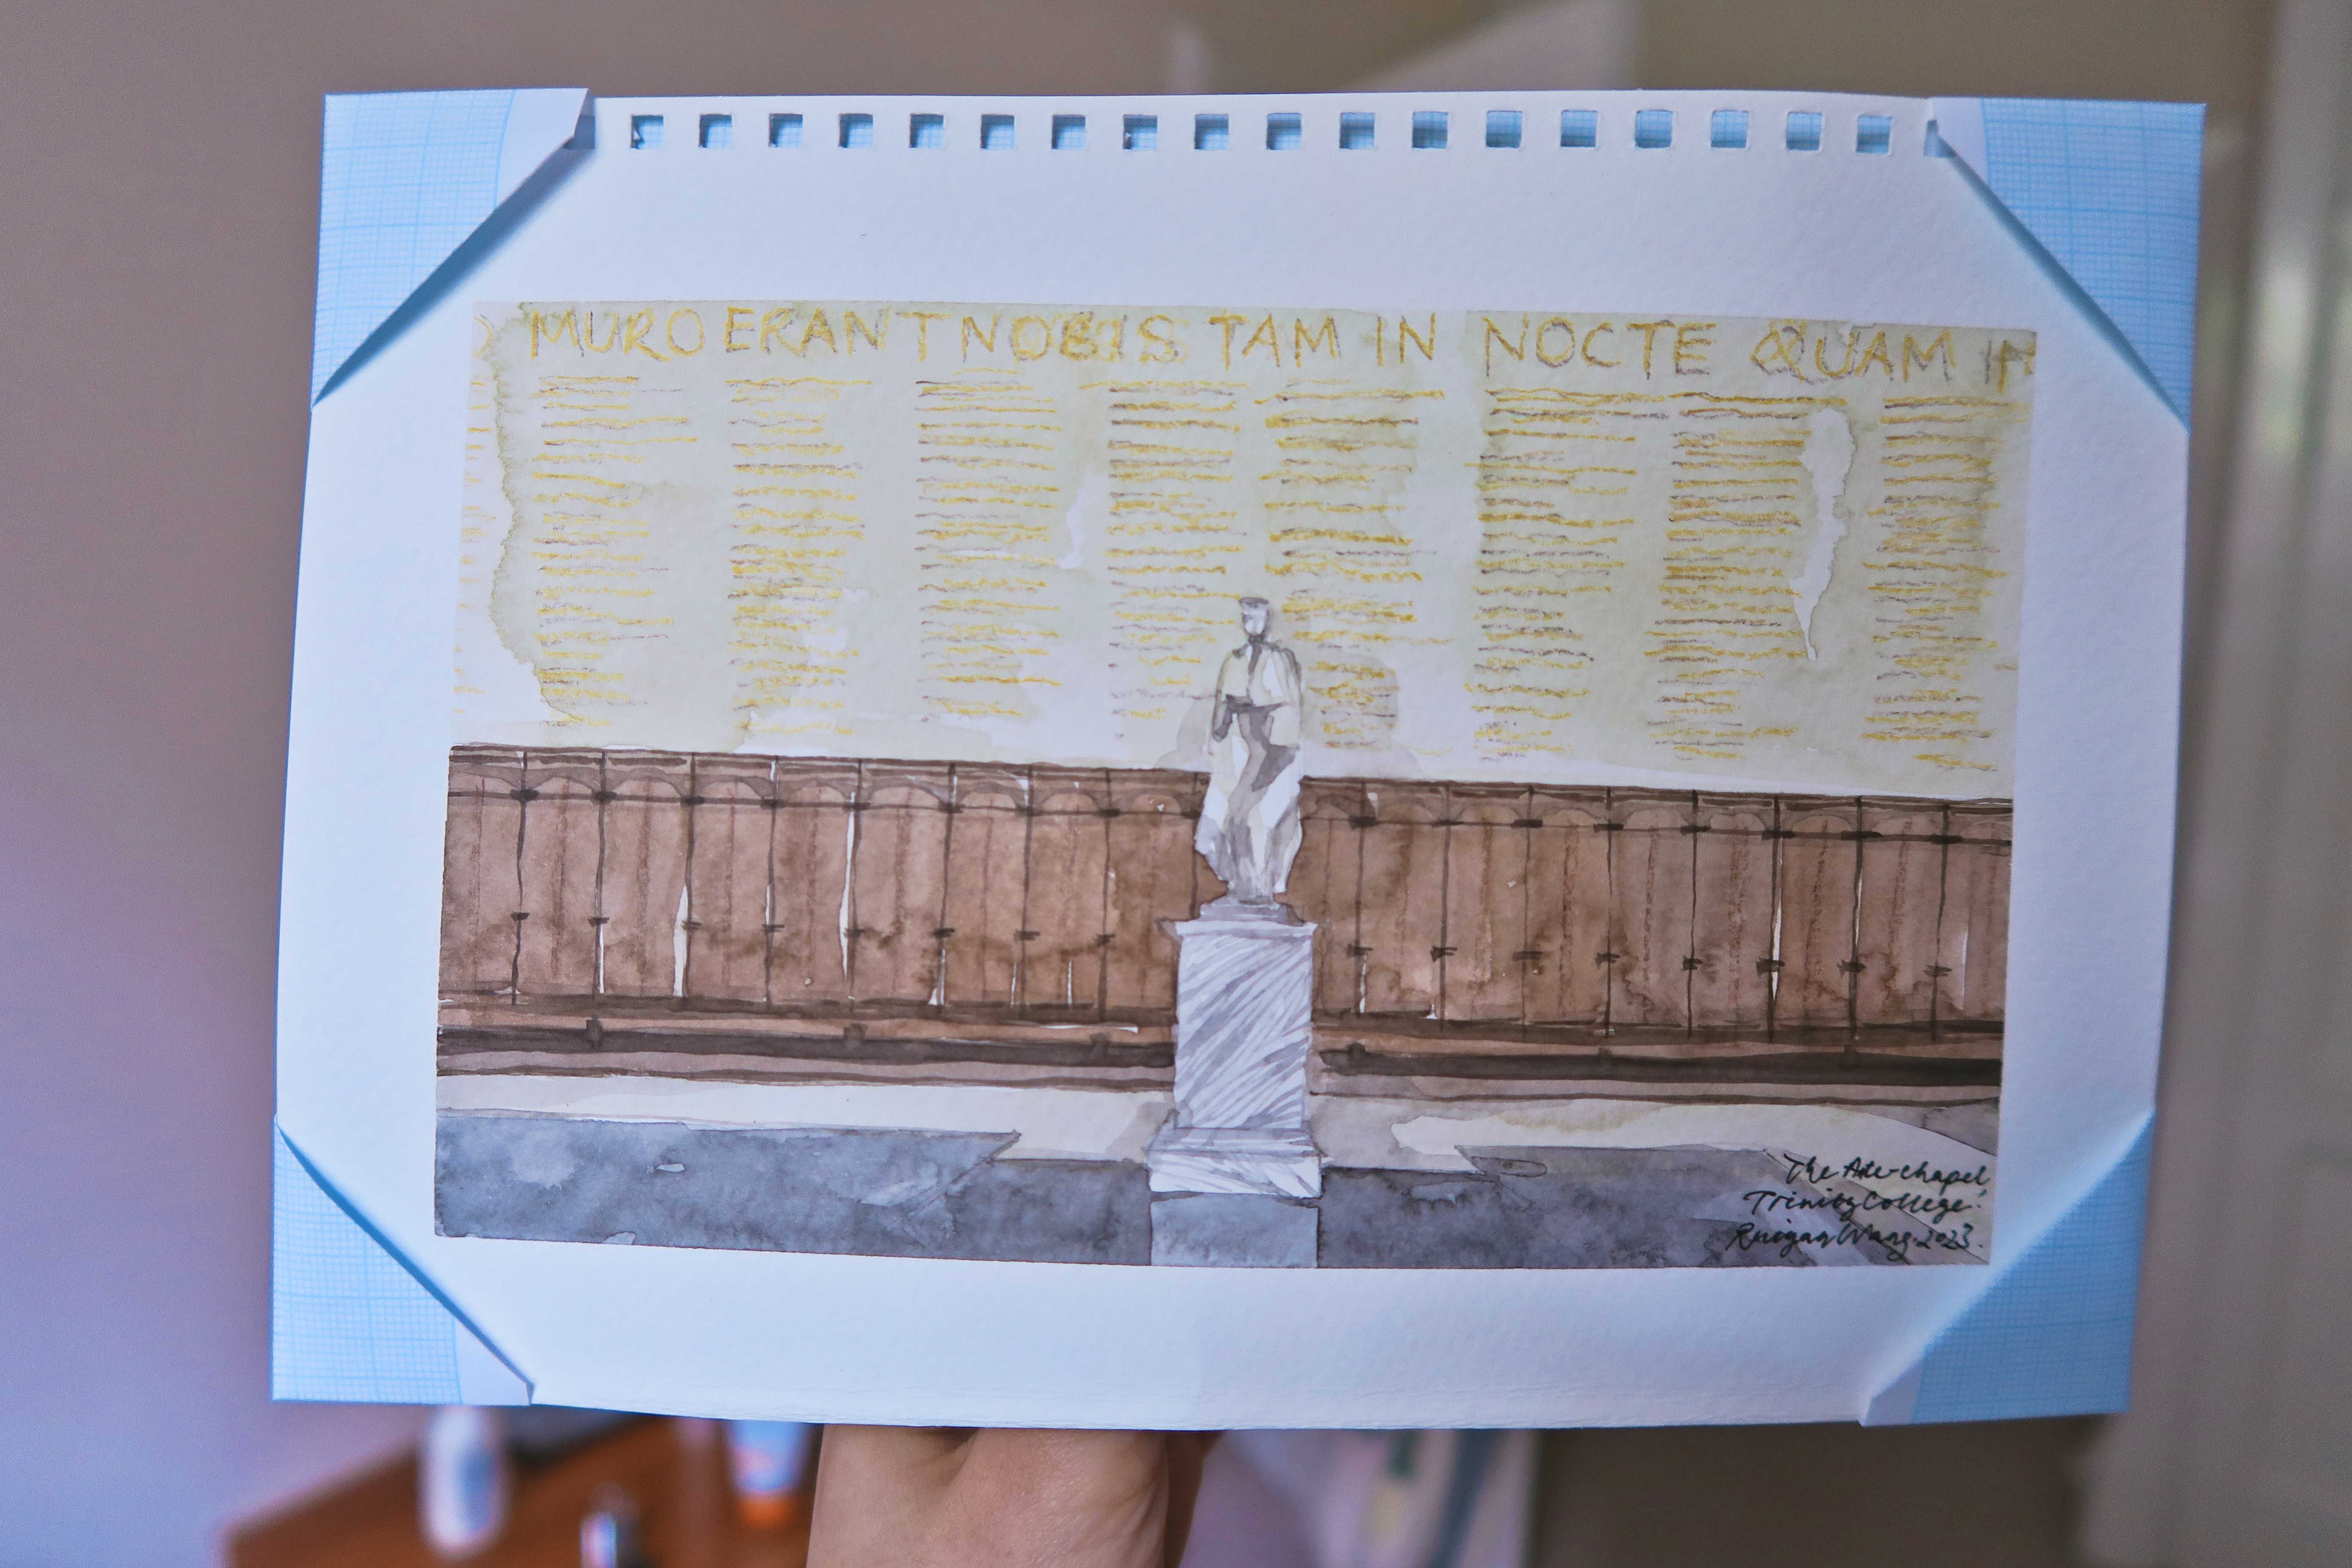 MURO ERANT NOBIS TAM IN NOCTE QUAM IN
The Ante-chapel
Trinity College.
Wang. 2023.